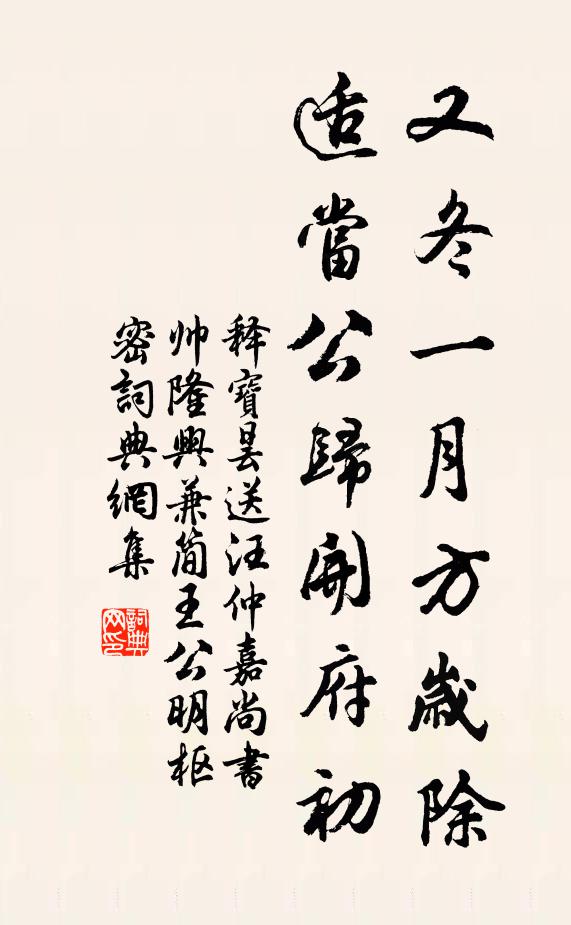 又冬一月方歲除
适當公歸開府初
释寶曇送汪仲嘉尚書
帅隆興兼简王公明枢
密詞典網集
詞典网印